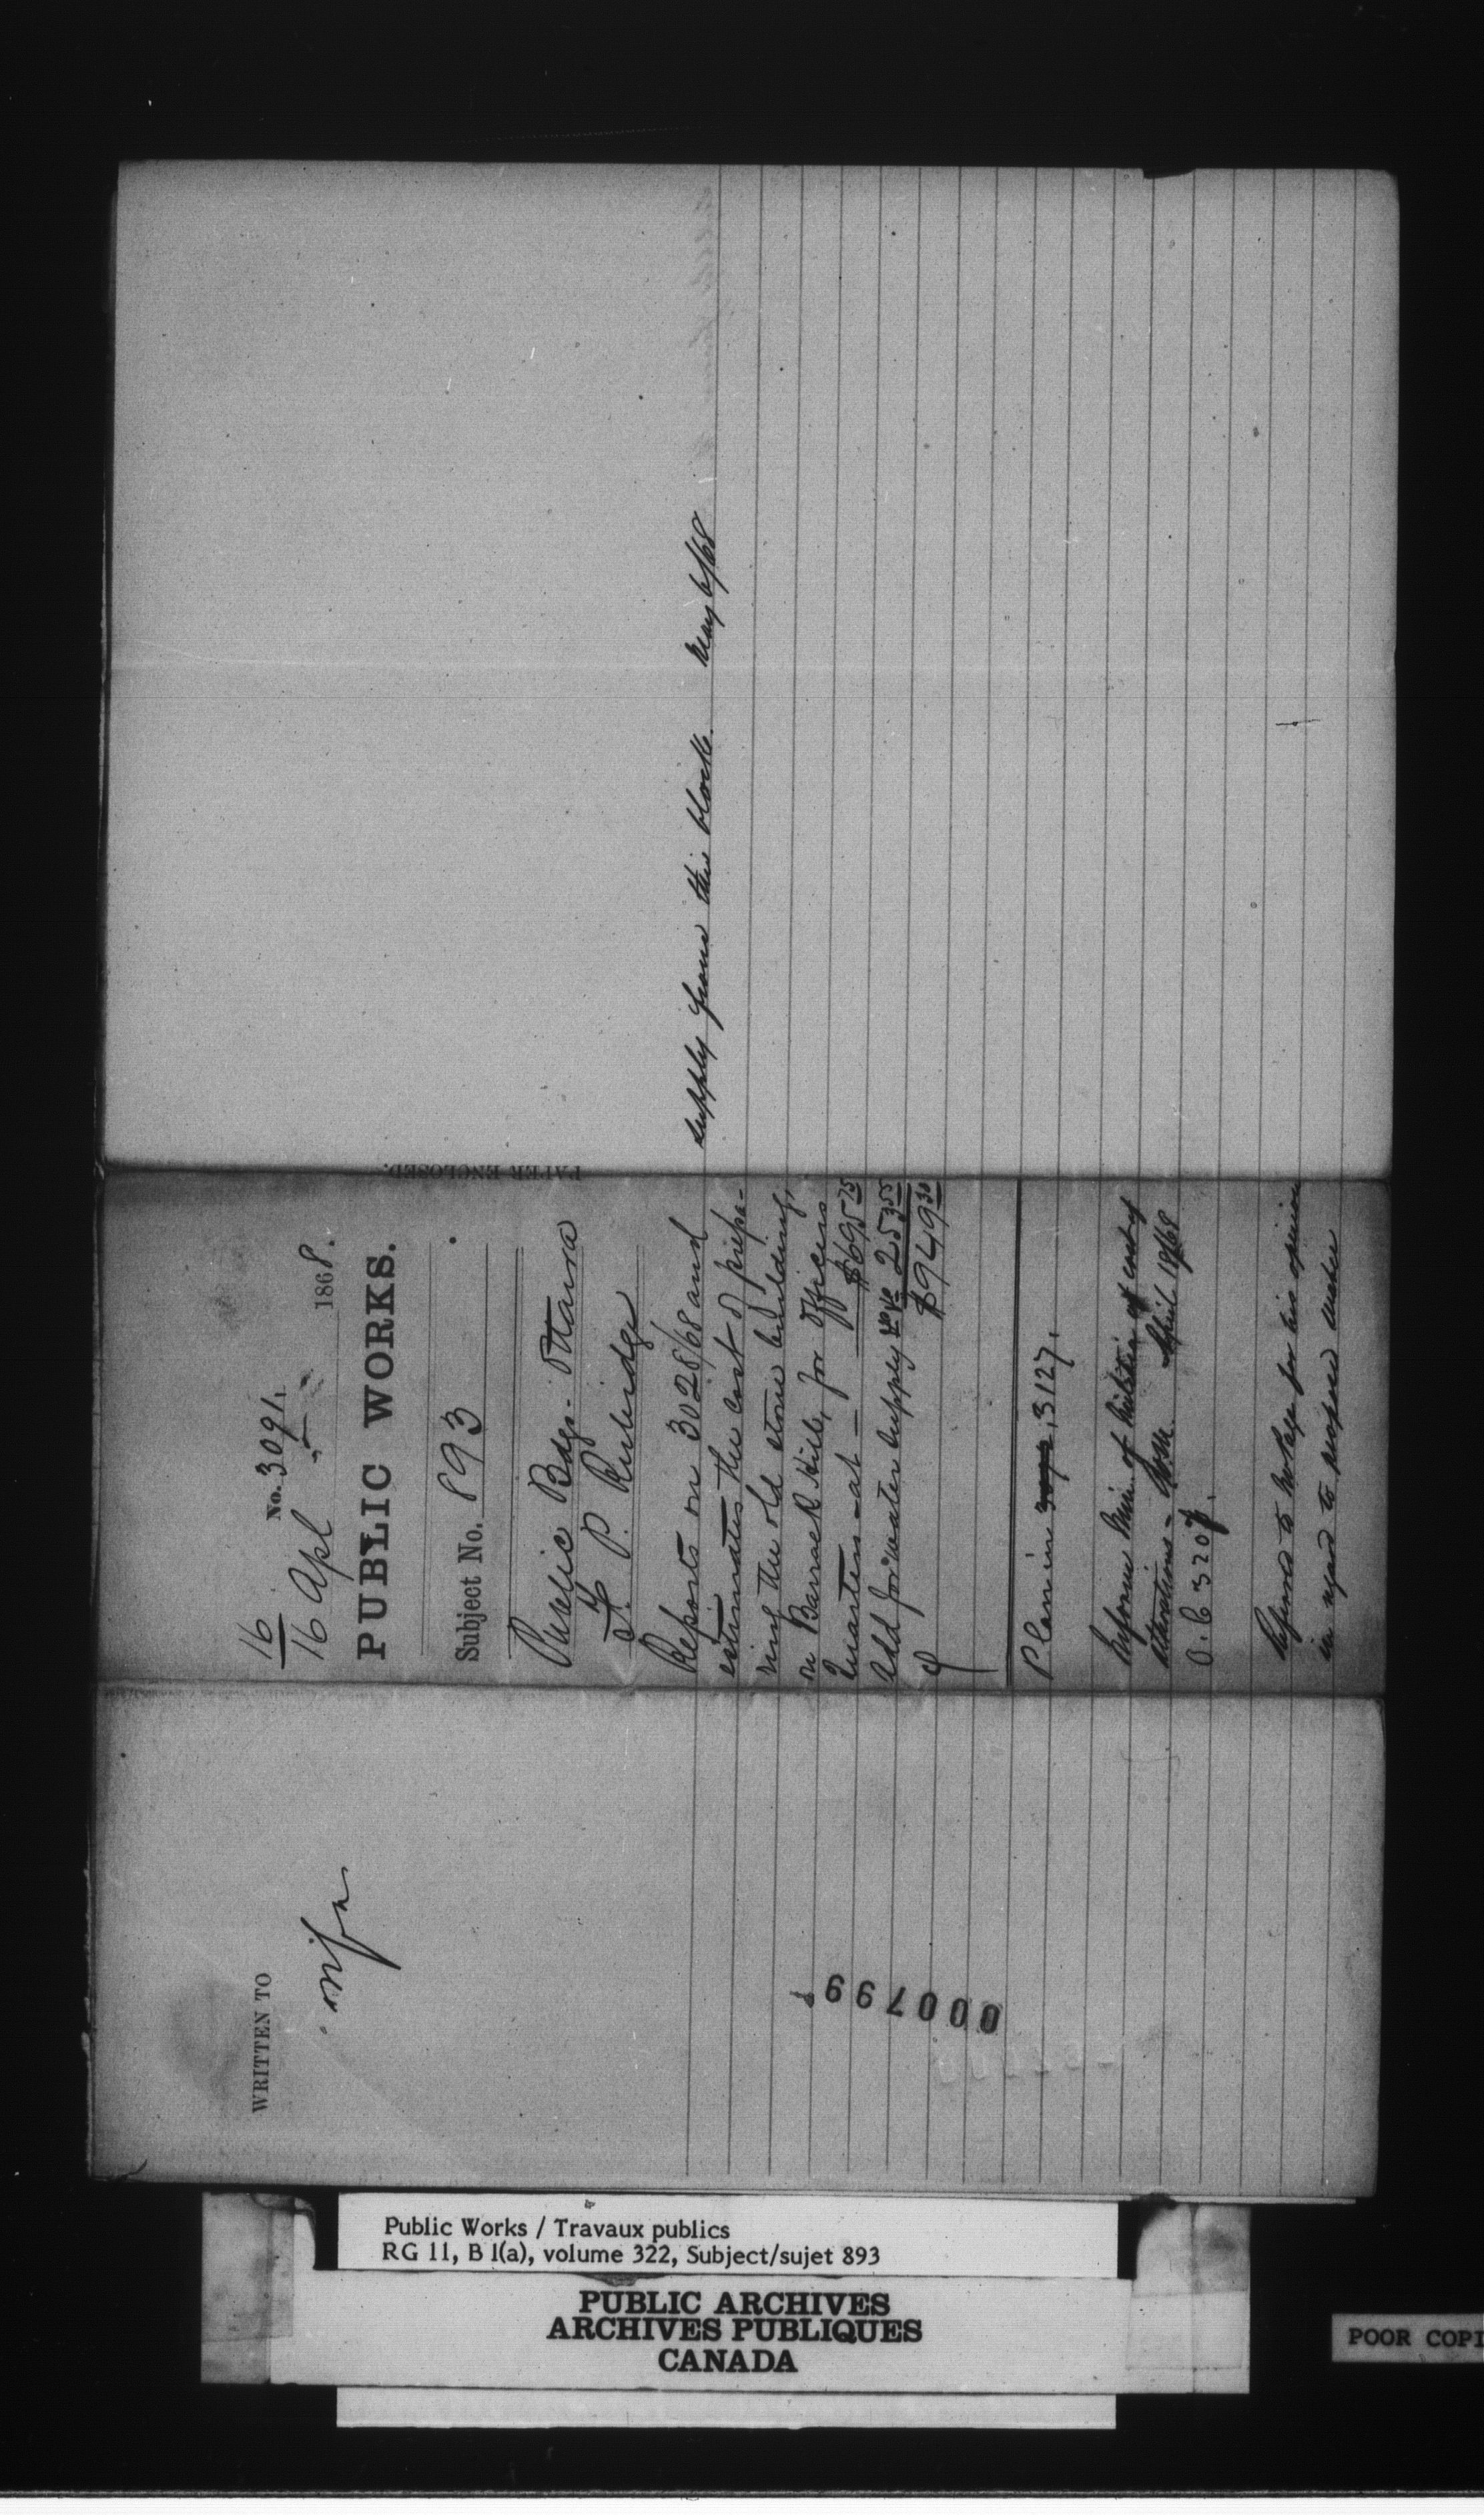 16
No. 3091.
16 Apl 1868.
PUBLIC WORKS.
Subject No. 893
Public Bdgs. Ottawa
F. P. Rubidge
Reports on 3028/68 and
estimates the cost of prepa-
ring the old stone building,
on Barrack Hill, for Officers
Quarters - at — $695 75
Add for water supply &c &c 253 55
$949 30
Plan in 3127.
Inform Min. of Militia of cost of
alterations - April 18/68
O. B 3207.
Referred to for his opinion
in regard to proposed water
supply from this block May 6/68
PAPER ENCLOSED.
WRITTEN TO
000799
Public Works / Travaux publics
RG 11, B 1(a), volume 322, Subject/sujet 893
PUBLIC ARCHIVES
ARCHIVES PUBLIQUES
CANADA
POOR COPI